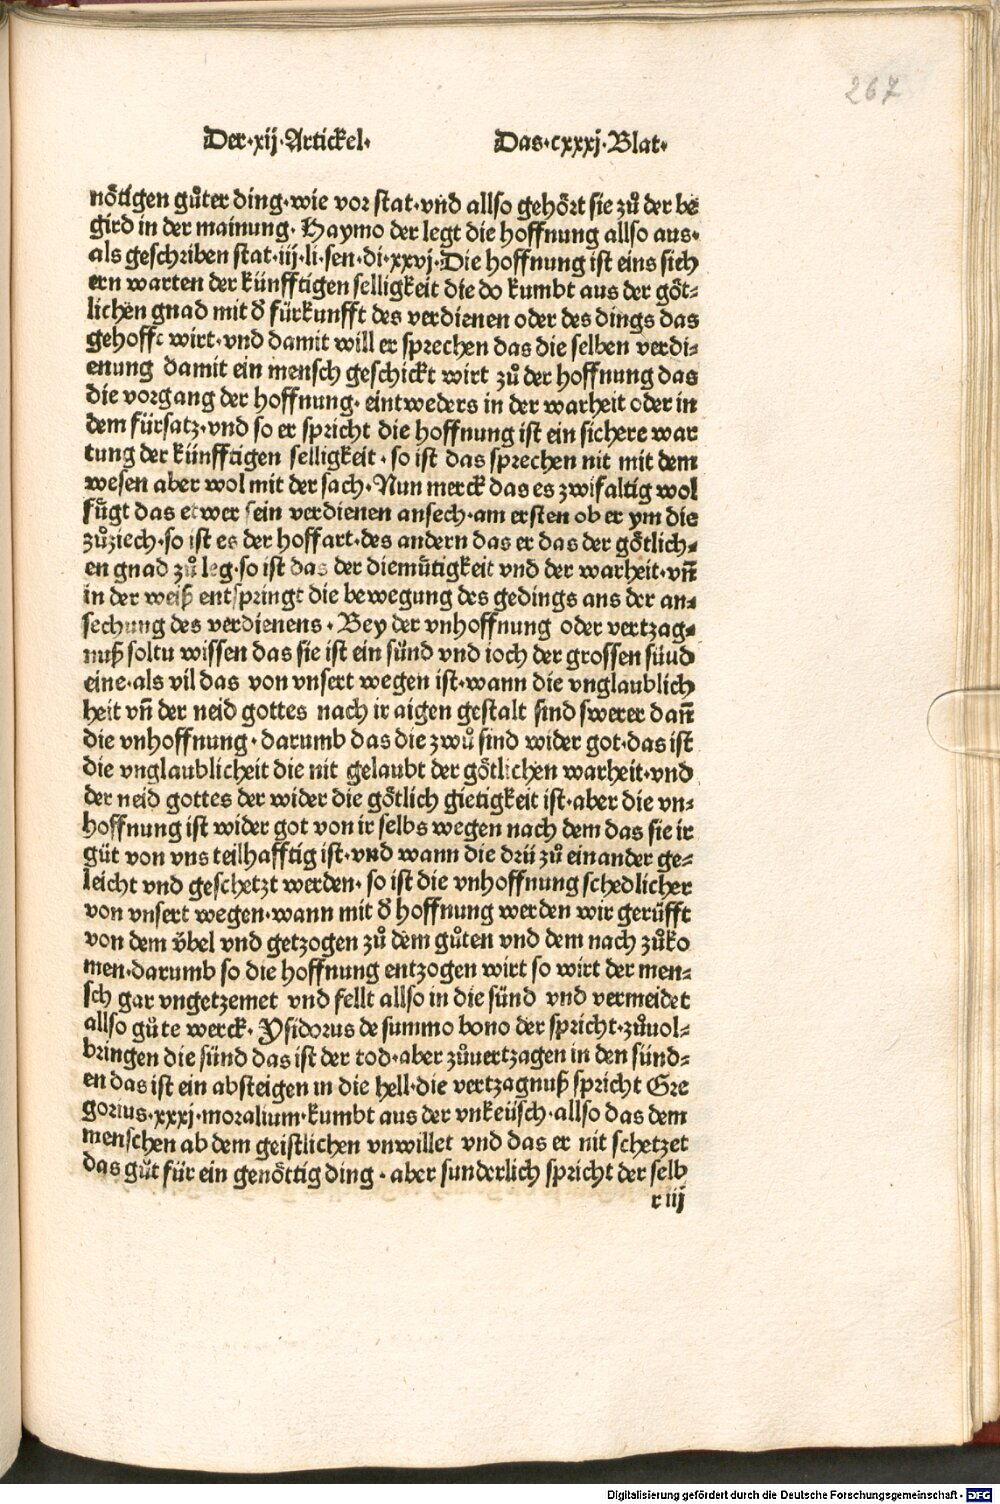 267
Der·xij·Artickel· Das·cxxxj·Blat·
nötigen gůter ding·wie vor stat·vnd allso gehört sie zů der be
gird in der mainung· Haymo der legt die hoffnung allso aus·
als geschriben stat·iij·li·sen·di·xxvj·Die hoffnung ist eins sich
ern warten der künfftigen selligkeit die do kumbt aus der göt⸗
lichen gnad mit d̕ fürkunfft des verdienen oder des dings das
gehofft wirt·vnd damit will er sprechen das die selben verdi⸗
enung damit ein mensch geschickt wirt zů der hoffnung das
die vorgang der hoffnung· eintweders in der warheit oder in
dem fürsatz·vnd so er spricht die hoffnung ist ein sichere war
tung der künfftigen selligkeit·so ist das sprechen nit mit dem
wesen aber wol mit der sach·Nun merck das es zwifaltig wol
fůgt das etwer sein verdienen ansech·am ersten ob er ym die
zůziech·so ist es der hoffart·des andern das er das der götlich⸗
en gnad zů leg·so ist das der diemůtigkeit vnd der warheit·vn̄
in der weiß entspringt die bewegung des gedings ans der an⸗
sechung des verdienens·Bey der vnhoffnung oder vertzag⸗
nuß soltu wissen das sie ist ein sünd vnd ioch der grossen süud
eine·als vil das von vnsert wegen ist·wann die vnglaublich
heit vn̄ der neid gottes nach ir aigen gestalt sind swerer dan̄
die vnhoffnung·darumb das die zwů sind wider got·das ist
die vnglaublicheit die nit gelaubt der götlichen warheit·vnd
der neid gottes der wider die götlich gietigkeit ist·aber die vn⸗
hoffnung ist wider got von ir selbs wegen nach dem das sie ir
güt von vns teilhafftig ist·vnd wann die drü zů einander ge⸗
leicht vnd geschetzt werden·so ist die vnhoffnung schedlicher
von vnsert wegen·wann mit d̕ hoffnung werden wir gerüfft
von dem v̈bel vnd getzogen zů dem gůten vnd dem nach zůko
men·darumb so die hoffnung entzogen wirt so wirt der men⸗
sch gar vngetzemet vnd fellt allso in die sünd vnd vermeidet
allso gůte werck·Ysidorus de summo bono der spricht·zůuol⸗
bringen die sünd das ist der tod·aber zůuertzagen in den sünd⸗
en das ist ein absteigen in die hell·die vertzagnuß spricht Gre
gorius·xxxj·moralium·kumbt aus der vnkeüsch·allso das dem
menschen ab dem geistlichen vnwillet vnd das er nit schetzet
das gůt für ein genöttig ding·aber sunderlich spricht der selb
r iij
Digitalisierung gefördert durch die Deutsche Forschungsgemeinschaft - DFG